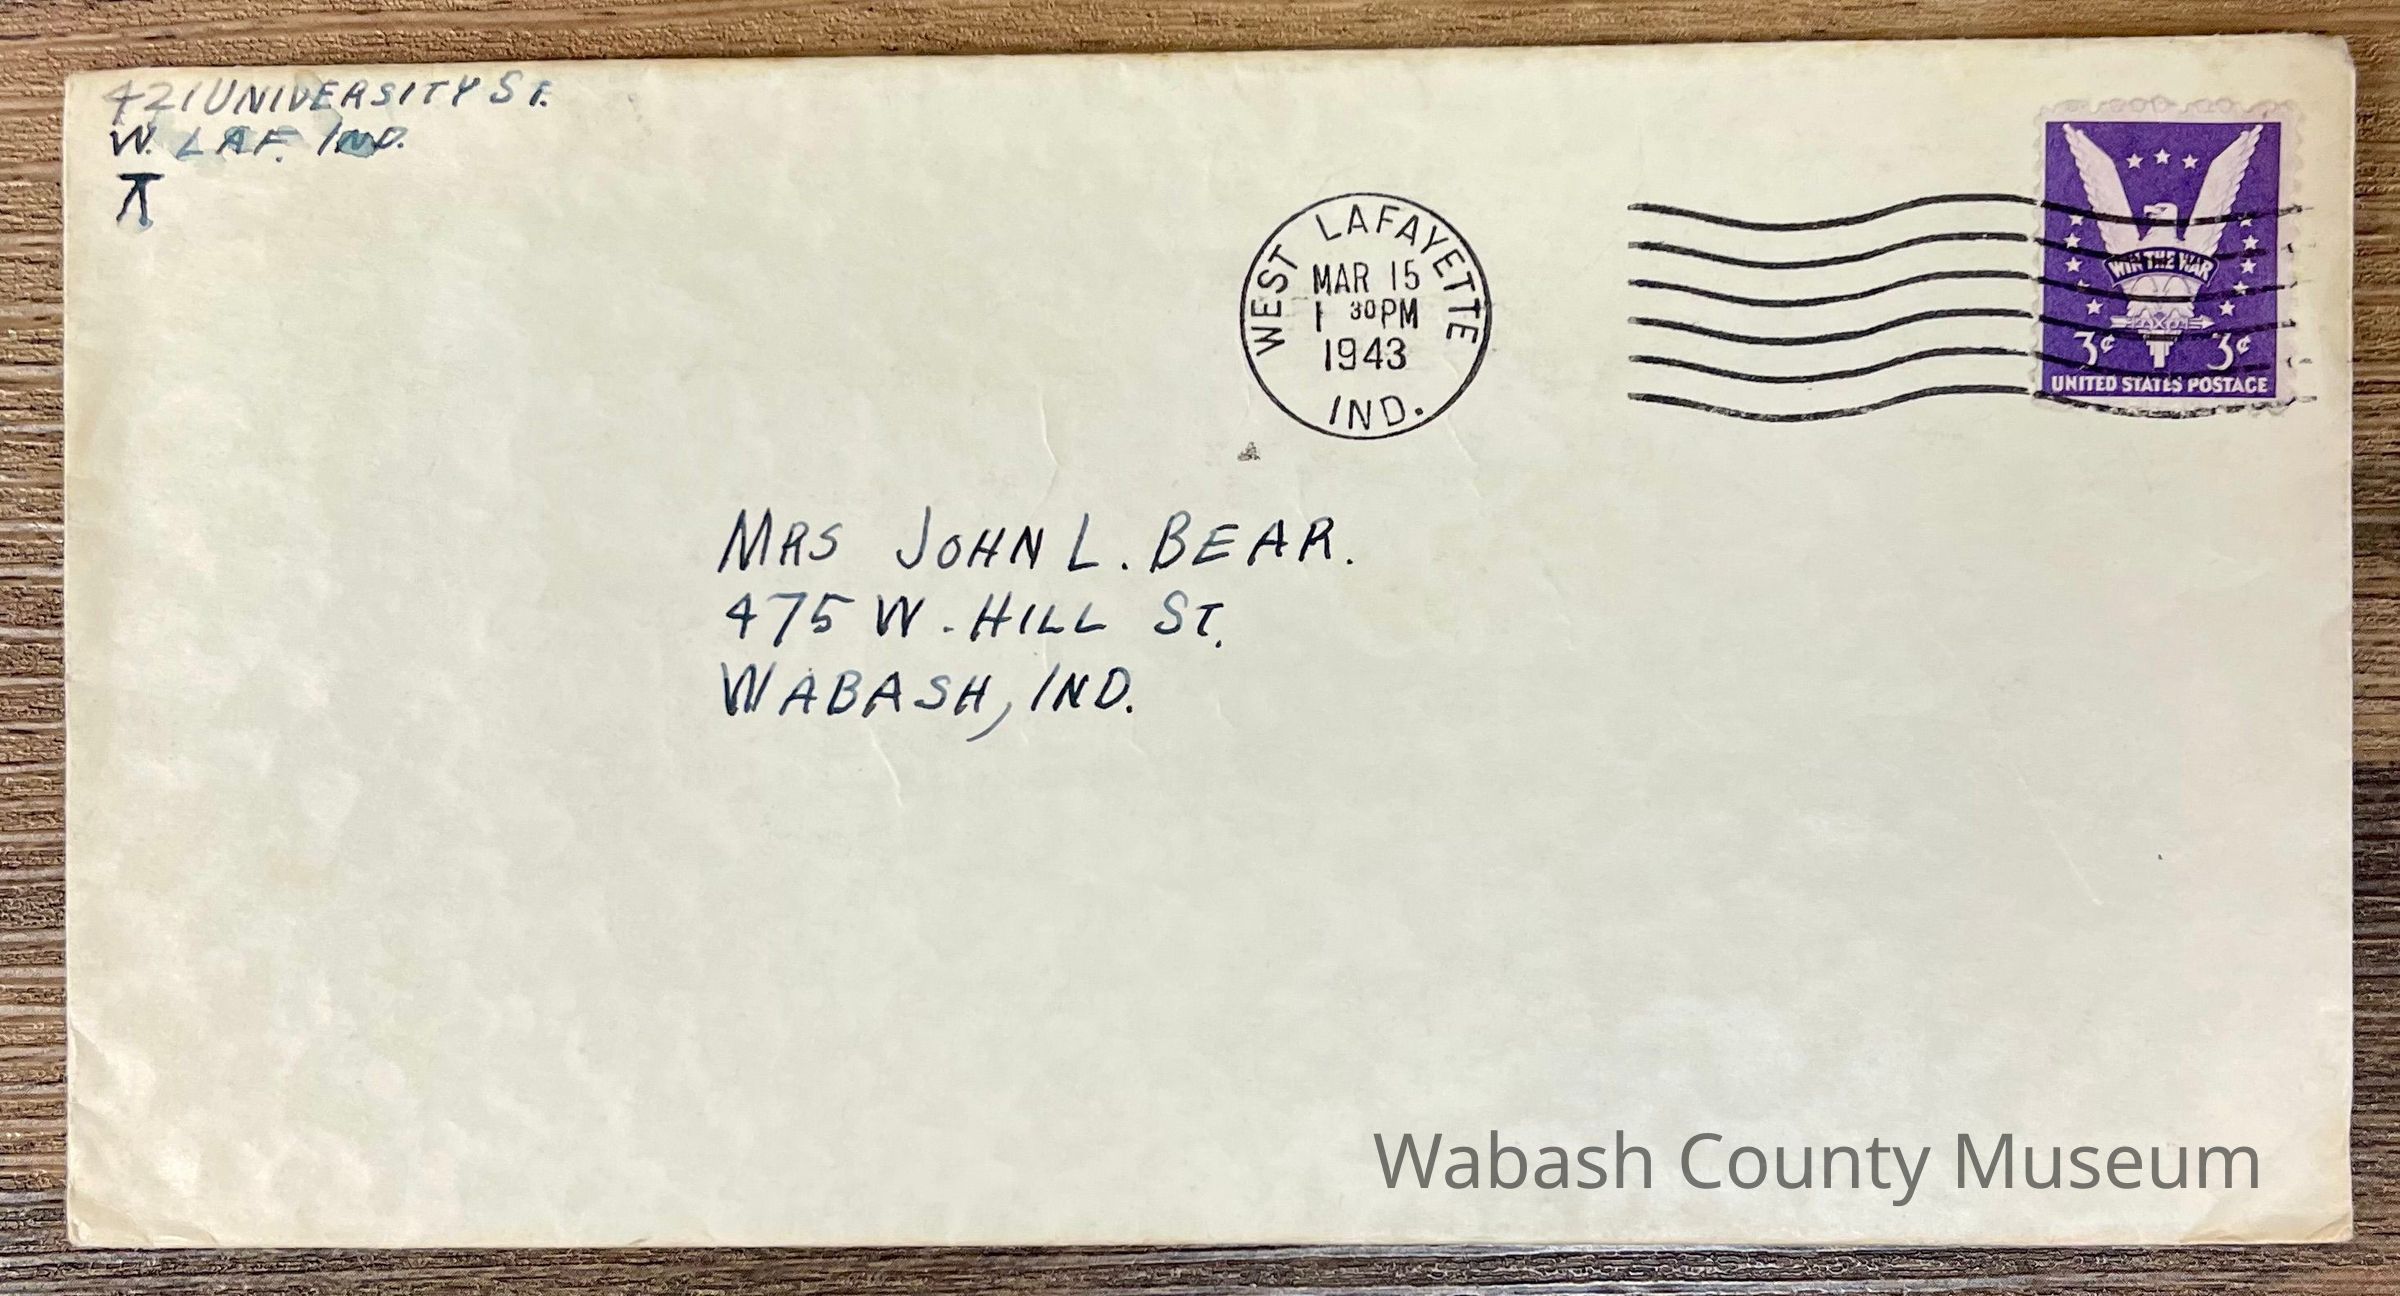 421 UNIVERSITY ST.
W. LAF. IND.
WEST LAFAYETTE
MAR 15
1 30PM
1943
IND.
WIN THE WAR
3¢ 3¢
UNITED STATES POSTAGE
MRS JOHN L. BEAR.
475 W. HILL ST.
WABASH, IND.
Wabash County Museum